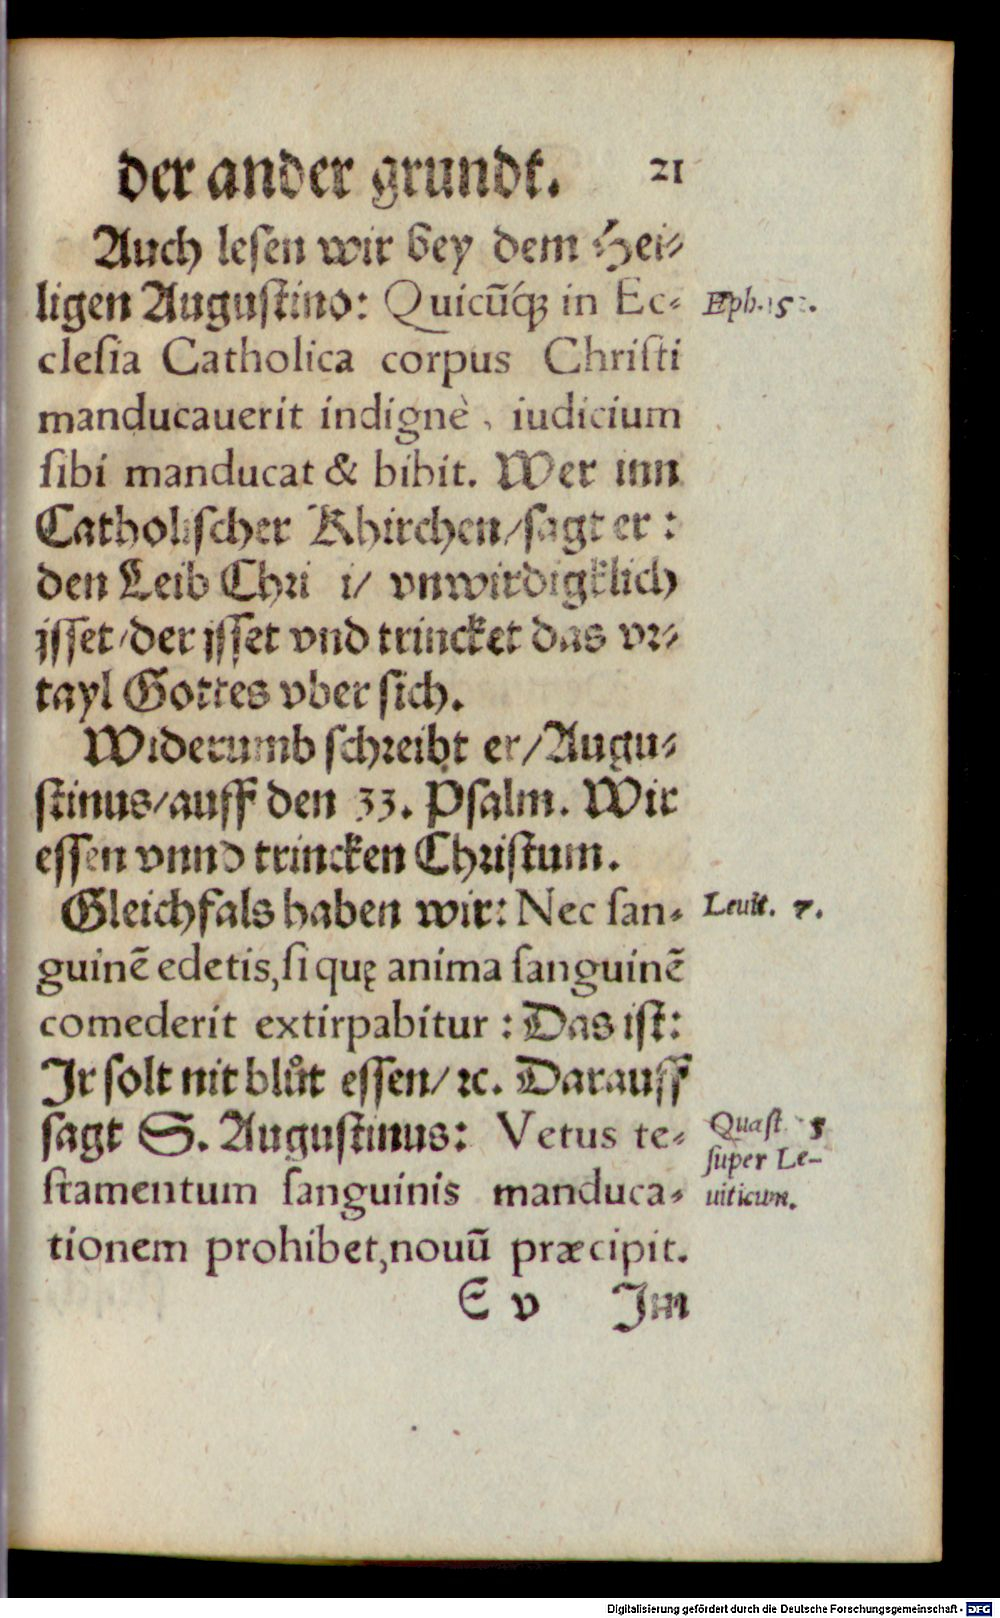 der ander grundt. 21
Auch lesen wir bey dem Hei⸗
ligen Augustino: Quicūq́ꝫ in Ec-
Epb. 5.
clesia Catholica corpus Christi
manducauerit indignè, iudicium
sibi manducat & bibit. Wer inn
Catholischer Khirchen/sagt er:
den Leib Chri i/ vnwirdigklich
jsset/der jsset vnd trincket das vr⸗
tayl Gottes vber sich.
Widerumb schreibt er/Augu⸗
stinus/auff den 33. Psalm. Wir
essen vnnd trincken Christum.
Gleichfals haben wir: Nec san-
Leuit. 7.
guinē edetis, si quę anima sanguinē
comederit extirpabitur: Das ist:
Jr solt nit blůt essen/ ꝛc. Darauff
sagt S. Augustinus: Vetus te-
Quæst. 5
super Le-
stamentum sanguinis manduca-
uiticum.
tionem prohibet, nouū præcipit.
E v Jm
Digitalisierung gefördert durch die Deutsche Forschungsgemeinschaft - DFG